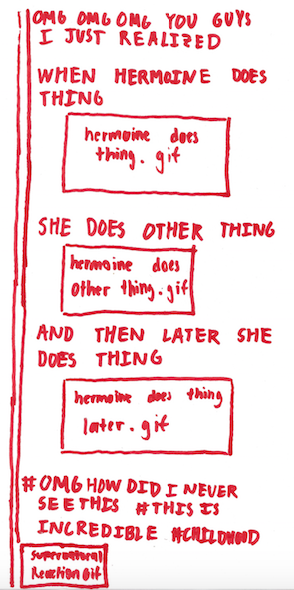 OMG OMG OMG YOU GUYS
I JUST REALIZED
WHEN HERMOINE DOES
THING
hermoine does
thing.gif
SHE DOES OTHER THING
hermoine does
other thing.gif
AND THEN LATER SHE
DOES THING
hermoine does thing
later.gif
#OMG HOW DID I NEVER
SEE THIS #THIS IS
INCREDIBLE #CHILDHOOD
Supernatural
Reaction Gif